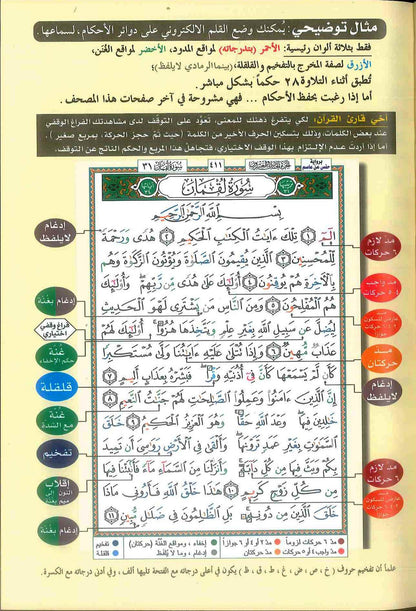 مثال توضيحي: يُمكنك وضع القلم الالكتروني على دوائر الأحكام، لسماعها.
فقط بثلاثة ألوان رئيسية: الأحمر (بتدرجاته) لمواقع المدود، الأخضر لمواقع الغُنن،
الأزرق لصفة المخرج بالتفخيم والقلقلة، (بينما الرمادي لايلفظ)
تُطبق أثناء التلاوة ٢٨ حكماً بشكل مباشر.
أما إذا رغبت بحفظ الأحكام ... فهي مشروحة في آخر صفحات هذا المصحف.
أخي قارئ القرآن: لكي يتفرغ ذهنك للمعنى، تعوَّد على التوقف لدى مشاهدتك الفراغ الوقفي
عند بعض الكلمات، وذلك بتسكين الحرف الأخير من الكلمة (حيث تمّ حجز الحركة، بمربع صغير).
أما إذا أردت عدم الإلتزام بهذا الوقف الاختياري، فتجاهل هذا المربع والحكم الناتج عن التوقف.
سورة لقمان ٣١
٤١١
برواية حفص عن عاصم
سُورَةُ لُقْمَان
بِسْمِ اللَّهِ الرَّحْمَٰنِ الرَّحِيمِ
الٓمٓ ١ تِلْكَ ءَايَٰتُ الْكِتَٰبِ الْحَكِيمِ ٢ هُدًى وَرَحْمَةً
لِّلْمُحْسِنِينَ ٣ الَّذِينَ يُقِيمُونَ الصَّلَوٰةَ وَيُؤْتُونَ الزَّكَوٰةَ وَهُم
بِالْءَاخِرَةِ هُمْ يُوقِنُونَ ٤ أُو۟لَٰٓئِكَ عَلَىٰ هُدًى مِّن رَّبِّهِمْ وَأُو۟لَٰٓئِكَ
هُمُ الْمُفْلِحُونَ ٥ وَمِنَ النَّاسِ مَن يَشْتَرِى لَهْوَ الْحَدِيثِ
لِيُضِلَّ عَن سَبِيلِ اللَّهِ بِغَيْرِ عِلْمٍ وَيَتَّخِذَهَا هُزُوًا أُو۟لَٰٓئِكَ لَهُمْ
عَذَابٌ مُّهِينٌ ٦ وَإِذَا تُتْلَىٰ عَلَيْهِ ءَايَٰتُنَا وَلَّىٰ مُسْتَكْبِرًا
كَأَن لَّمْ يَسْمَعْهَا كَأَنَّ فِىٓ أُذُنَيْهِ وَقْرًا فَبَشِّرْهُ بِعَذَابٍ أَلِيمٍ ٧
إِنَّ الَّذِينَ ءَامَنُوا۟ وَعَمِلُوا۟ الصَّٰلِحَٰتِ لَهُمْ جَنَّٰتُ النَّعِيمِ ٨
خَٰلِدِينَ فِيهَا وَعْدَ اللَّهِ حَقًّا وَهُوَ الْعَزِيزُ الْحَكِيمُ ٩ خَلَقَ
السَّمَٰوَٰتِ بِغَيْرِ عَمَدٍ تَرَوْنَهَا وَأَلْقَىٰ فِى الْأَرْضِ رَوَٰسِىَ أَن تَمِيدَ
بِكُمْ وَبَثَّ فِيهَا مِن كُلِّ دَآبَّةٍ وَأَنزَلْنَا مِنَ السَّمَآءِ مَآءً فَأَنۢبَتْنَا فِيهَا
مِن كُلِّ زَوْجٍ كَرِيمٍ ١٠ هَٰذَا خَلْقُ اللَّهِ فَأَرُونِى مَاذَا
خَلَقَ الَّذِينَ مِن دُونِهِۦ بَلِ الظَّٰلِمُونَ فِى ضَلَٰلٍ مُّبِينٍ ١١
مد لازم ٦ حركات
مد واجب ٤ ٥ حركات
مد حركتان
إدغام لايلفظ
مد لازم ٦ حركات
إدغام لايلفظ
إدغام بغُنّة
فراغ وقفي اختياري
غُنّة حكم الإخفاء
قلقلة
غُنّة مع الشدة
تفخيم
إقلاب النون إلى ميم
إدغام بغُنّة
مدّ ٦ حركات لزوماً
مدّ ٢ أو ٤ أو ٦ جوازاً
إخفاء، ومواقع الغُنَّة (حركتان)
تفخيم
مدّ واجب ٤ أو ٥ حركات
مدّ حركتان
إدغام، وما لا يُلفظ
قلقلة
علماً أن تفخيم حروف (خ، ص، ض، غ، ط، ق، ظ) يكون في أعلى درجاته مع الفتحة تليها ألف، وفي أدنى درجاته مع الكسرة.